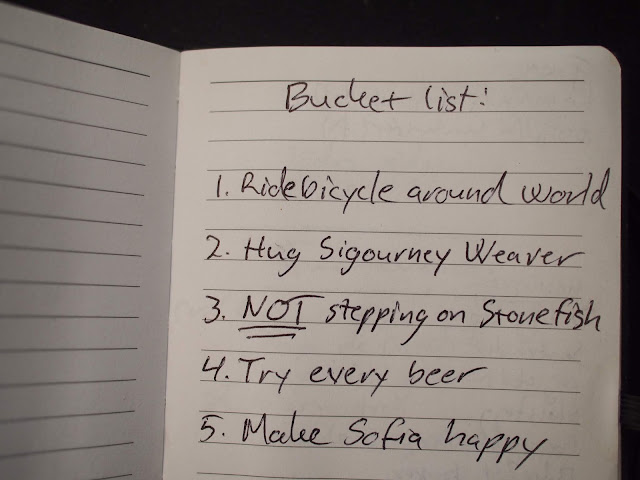 Bucket list:
1. Ride bicycle around world
2. Hug Sigourney Weaver
3. NOT stepping on Stonefish
4. Try every beer
5. Make Sofia happy